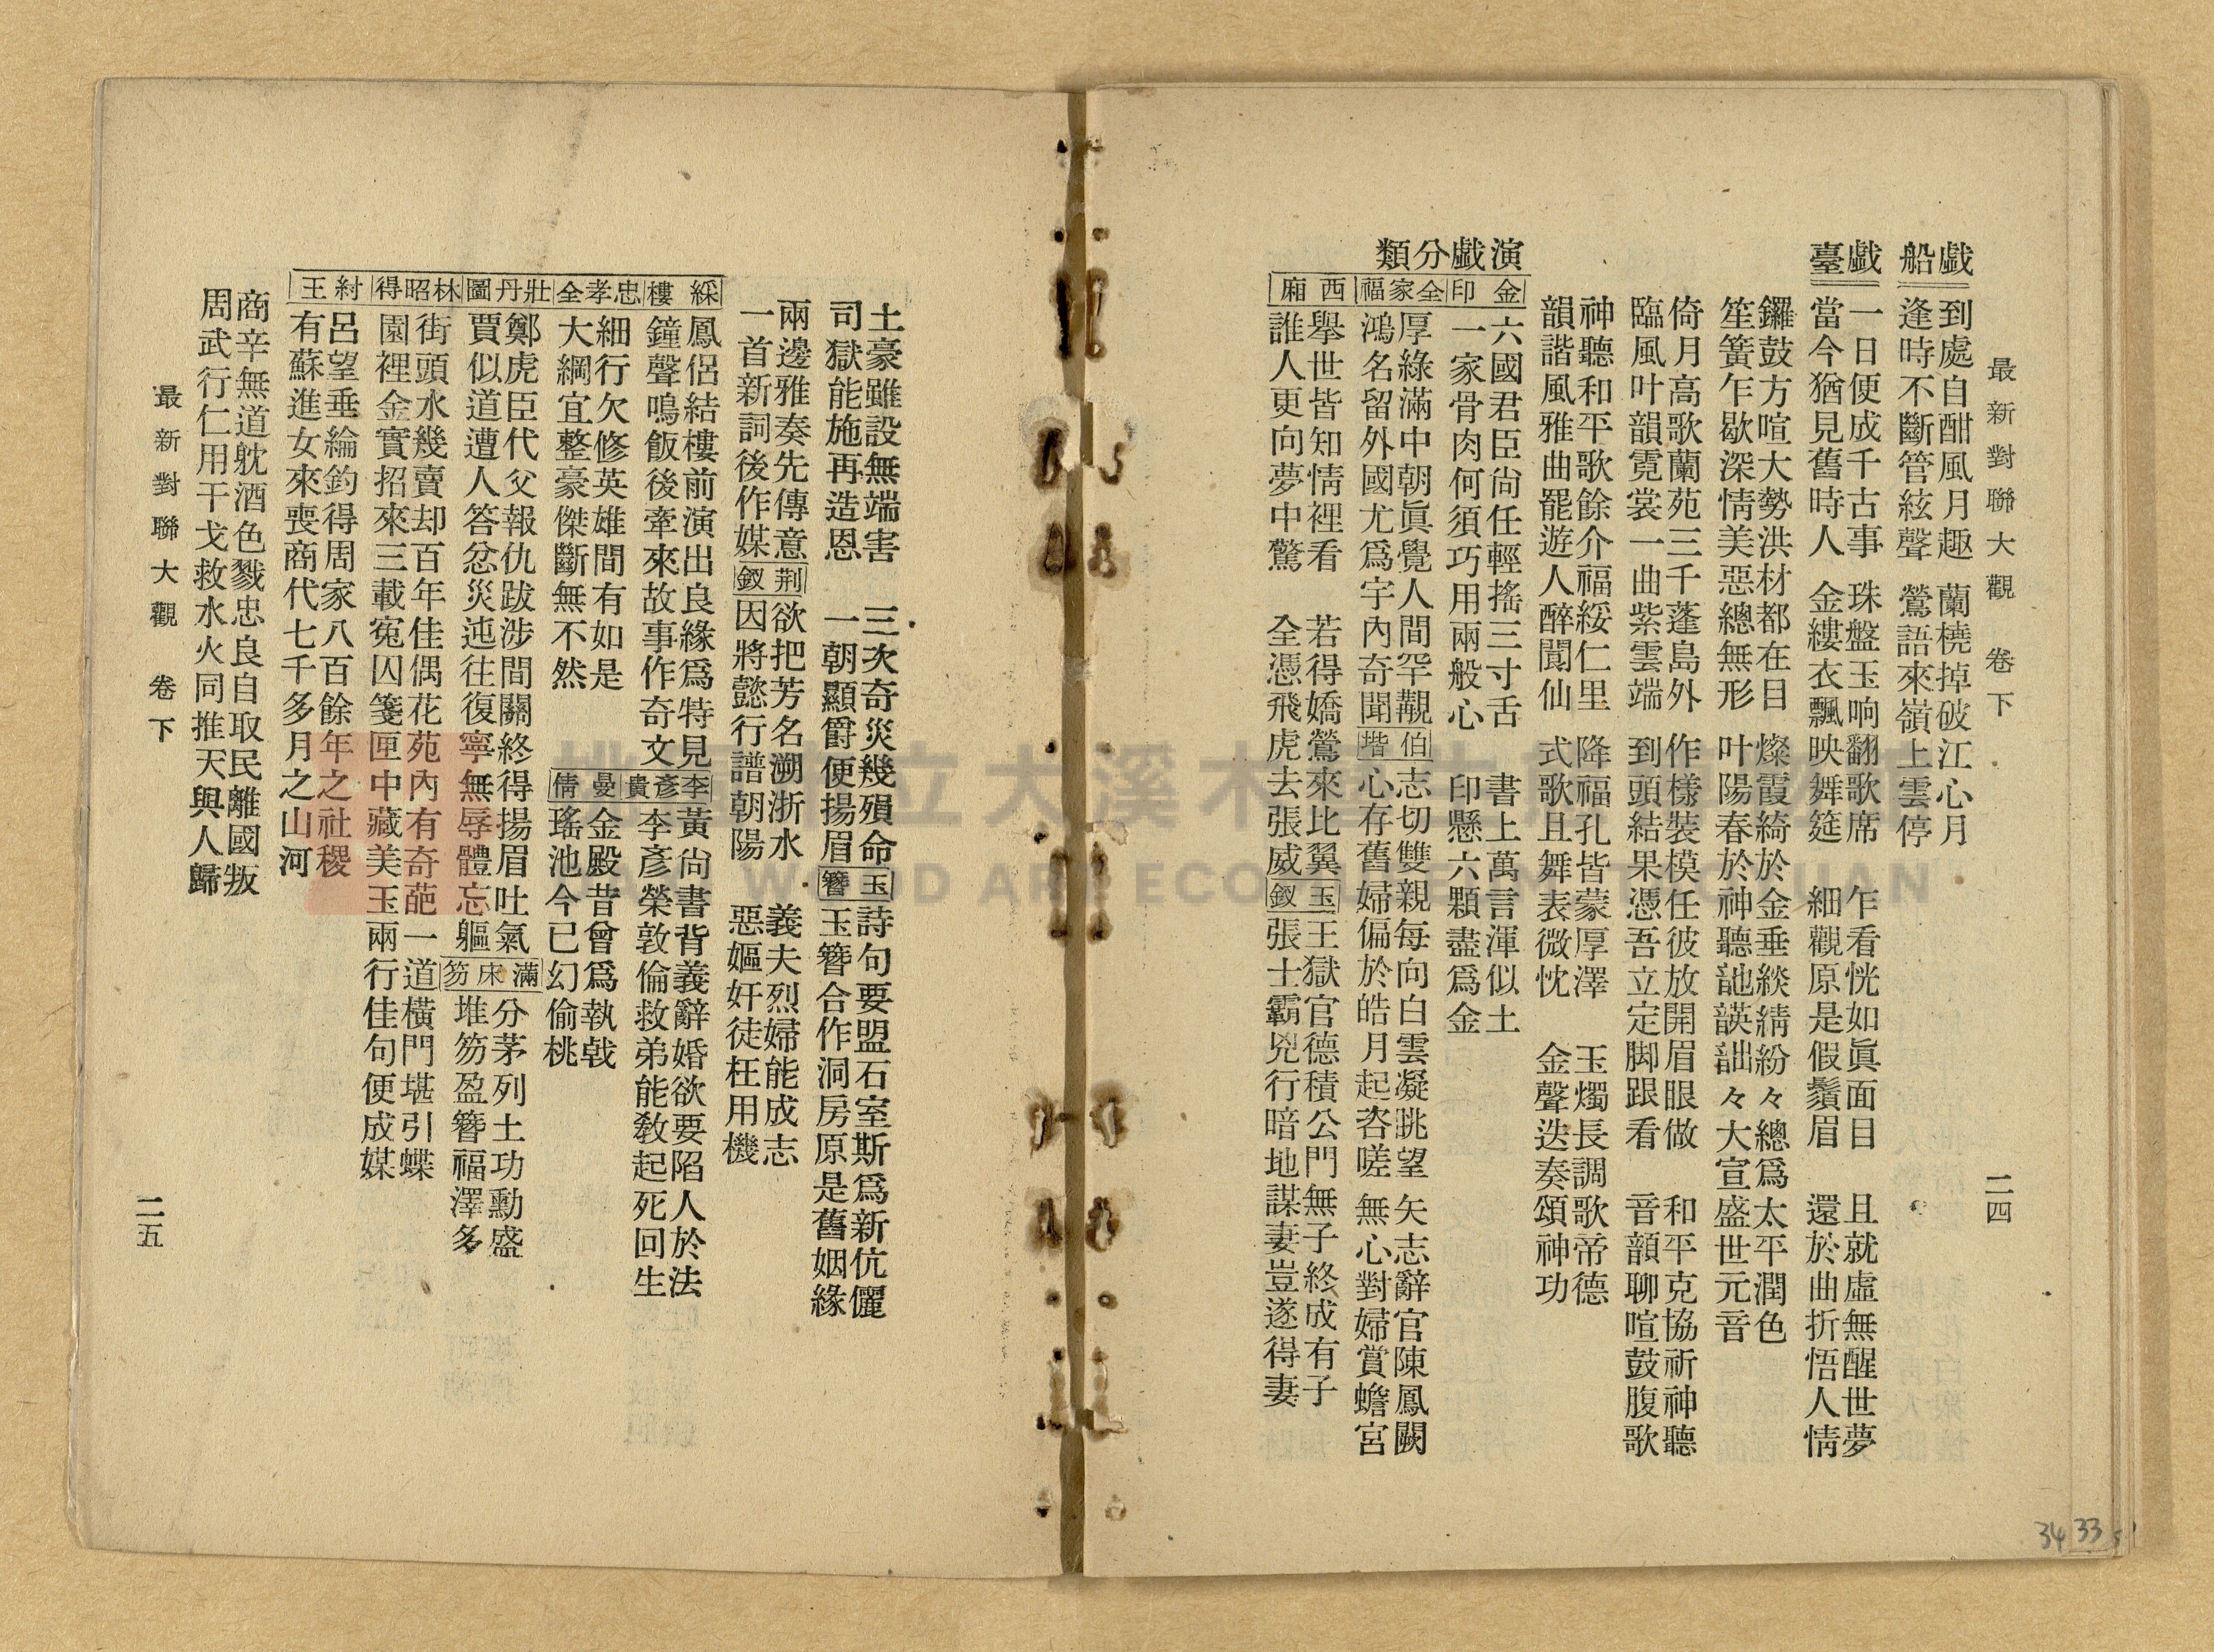 最新對聯大觀　卷下　二四
戲船
到處自酣風月趣　蘭橈掉破江心月
逢時不斷管絃聲　鶯語來嶺上雲停
戲臺
一日便成千古事　珠盤玉响翻歌席　乍看恍如眞面目　且就虛無醒世夢
當今猶見舊時人　金縷衣飄映舞筵　細觀原是假鬚眉　還於曲折悟人情
鑼鼓方喧大勢洪材都在目　燦霞綺於金垂緂綪紛々總爲太平潤色
笙簧乍歇深情美惡總無形　叶陽春於神聽訑韺詘々大宣盛世元音
倚月高歌蘭苑三千蓬島外　作樣裝模任彼放開眉眼做　和平克協祈神聽
臨風叶韻霓裳一曲紫雲端　到頭結果憑吾立定脚跟看　音韻聊喧鼓腹歌
神聽和平歌餘介福綏仁里　降福孔皆蒙厚澤　玉燭長調歌帝德
韻諧風雅曲罷遊人醉閬仙　式歌且舞表微忱　金聲迭奏頌神功
演戲分類
金印
六國君臣尙任輕搖三寸舌　書上萬言渾似土
一家骨肉何須巧用兩般心　印懸六顆盡爲金
全家福
厚綠滿中朝眞覺人間罕覯
鴻名留外國尤爲宇內奇聞
伯喈
志切雙親每向白雲凝眺望　矢志辭官陳鳳闕
心存舊婦偏於皓月起咨嗟　無心對婦賞蟾宮
西廂
舉世皆知情裡看　若得嬌鶯來比翼
誰人更向夢中驚　全憑飛虎去張威
玉釵
王獄官德積公門無子終成有子
張士霸兇行暗地謀妻豈遂得妻
土豪雖設無端害　三次奇災幾殞命
司獄能施再造恩　一朝顯爵便揚眉
玉簪
詩句要盟石室斯爲新伉儷
玉簪合作洞房原是舊姻緣
兩邊雅奏先傳意
一首新詞後作媒
荆釵
欲把芳名溯浙水　義夫烈婦能成志
因將懿行譜朝陽　惡嫗奸徒枉用機
綵樓
鳳侶結樓前演出良緣爲特見
鐘聲鳴飯後牽來故事作奇文
李彥貴
黃尙書背義辭婚欲要陷人於法
李彥榮敦倫救弟能敎起死回生
忠孝全
細行欠修英雄間有如是
大綱宜整豪傑斷無不然
曼倩
金殿昔曾爲執戟
瑤池今已幻偷桃
壯丹圖
鄭虎臣代父報仇跋涉間關終得揚眉吐氣
賈似道遭人答忿災迍往復寧無辱體忘軀
滿床笏
分茅列土功勳盛
堆笏盈簪福澤多
林昭得
街頭水幾賣却百年佳偶花苑內有奇葩一道橫門堪引蝶
園裡金實招來三載寃囚箋匣中藏美玉兩行佳句便成媒
紂王
呂望垂綸釣得周家八百餘年之社稷
有蘇進女來喪商代七千多月之山河
商辛無道躭酒色戮忠良自取民離國叛
周武行仁用干戈救水火同推天與人歸
最新對聯大觀　卷下　二五
34 33